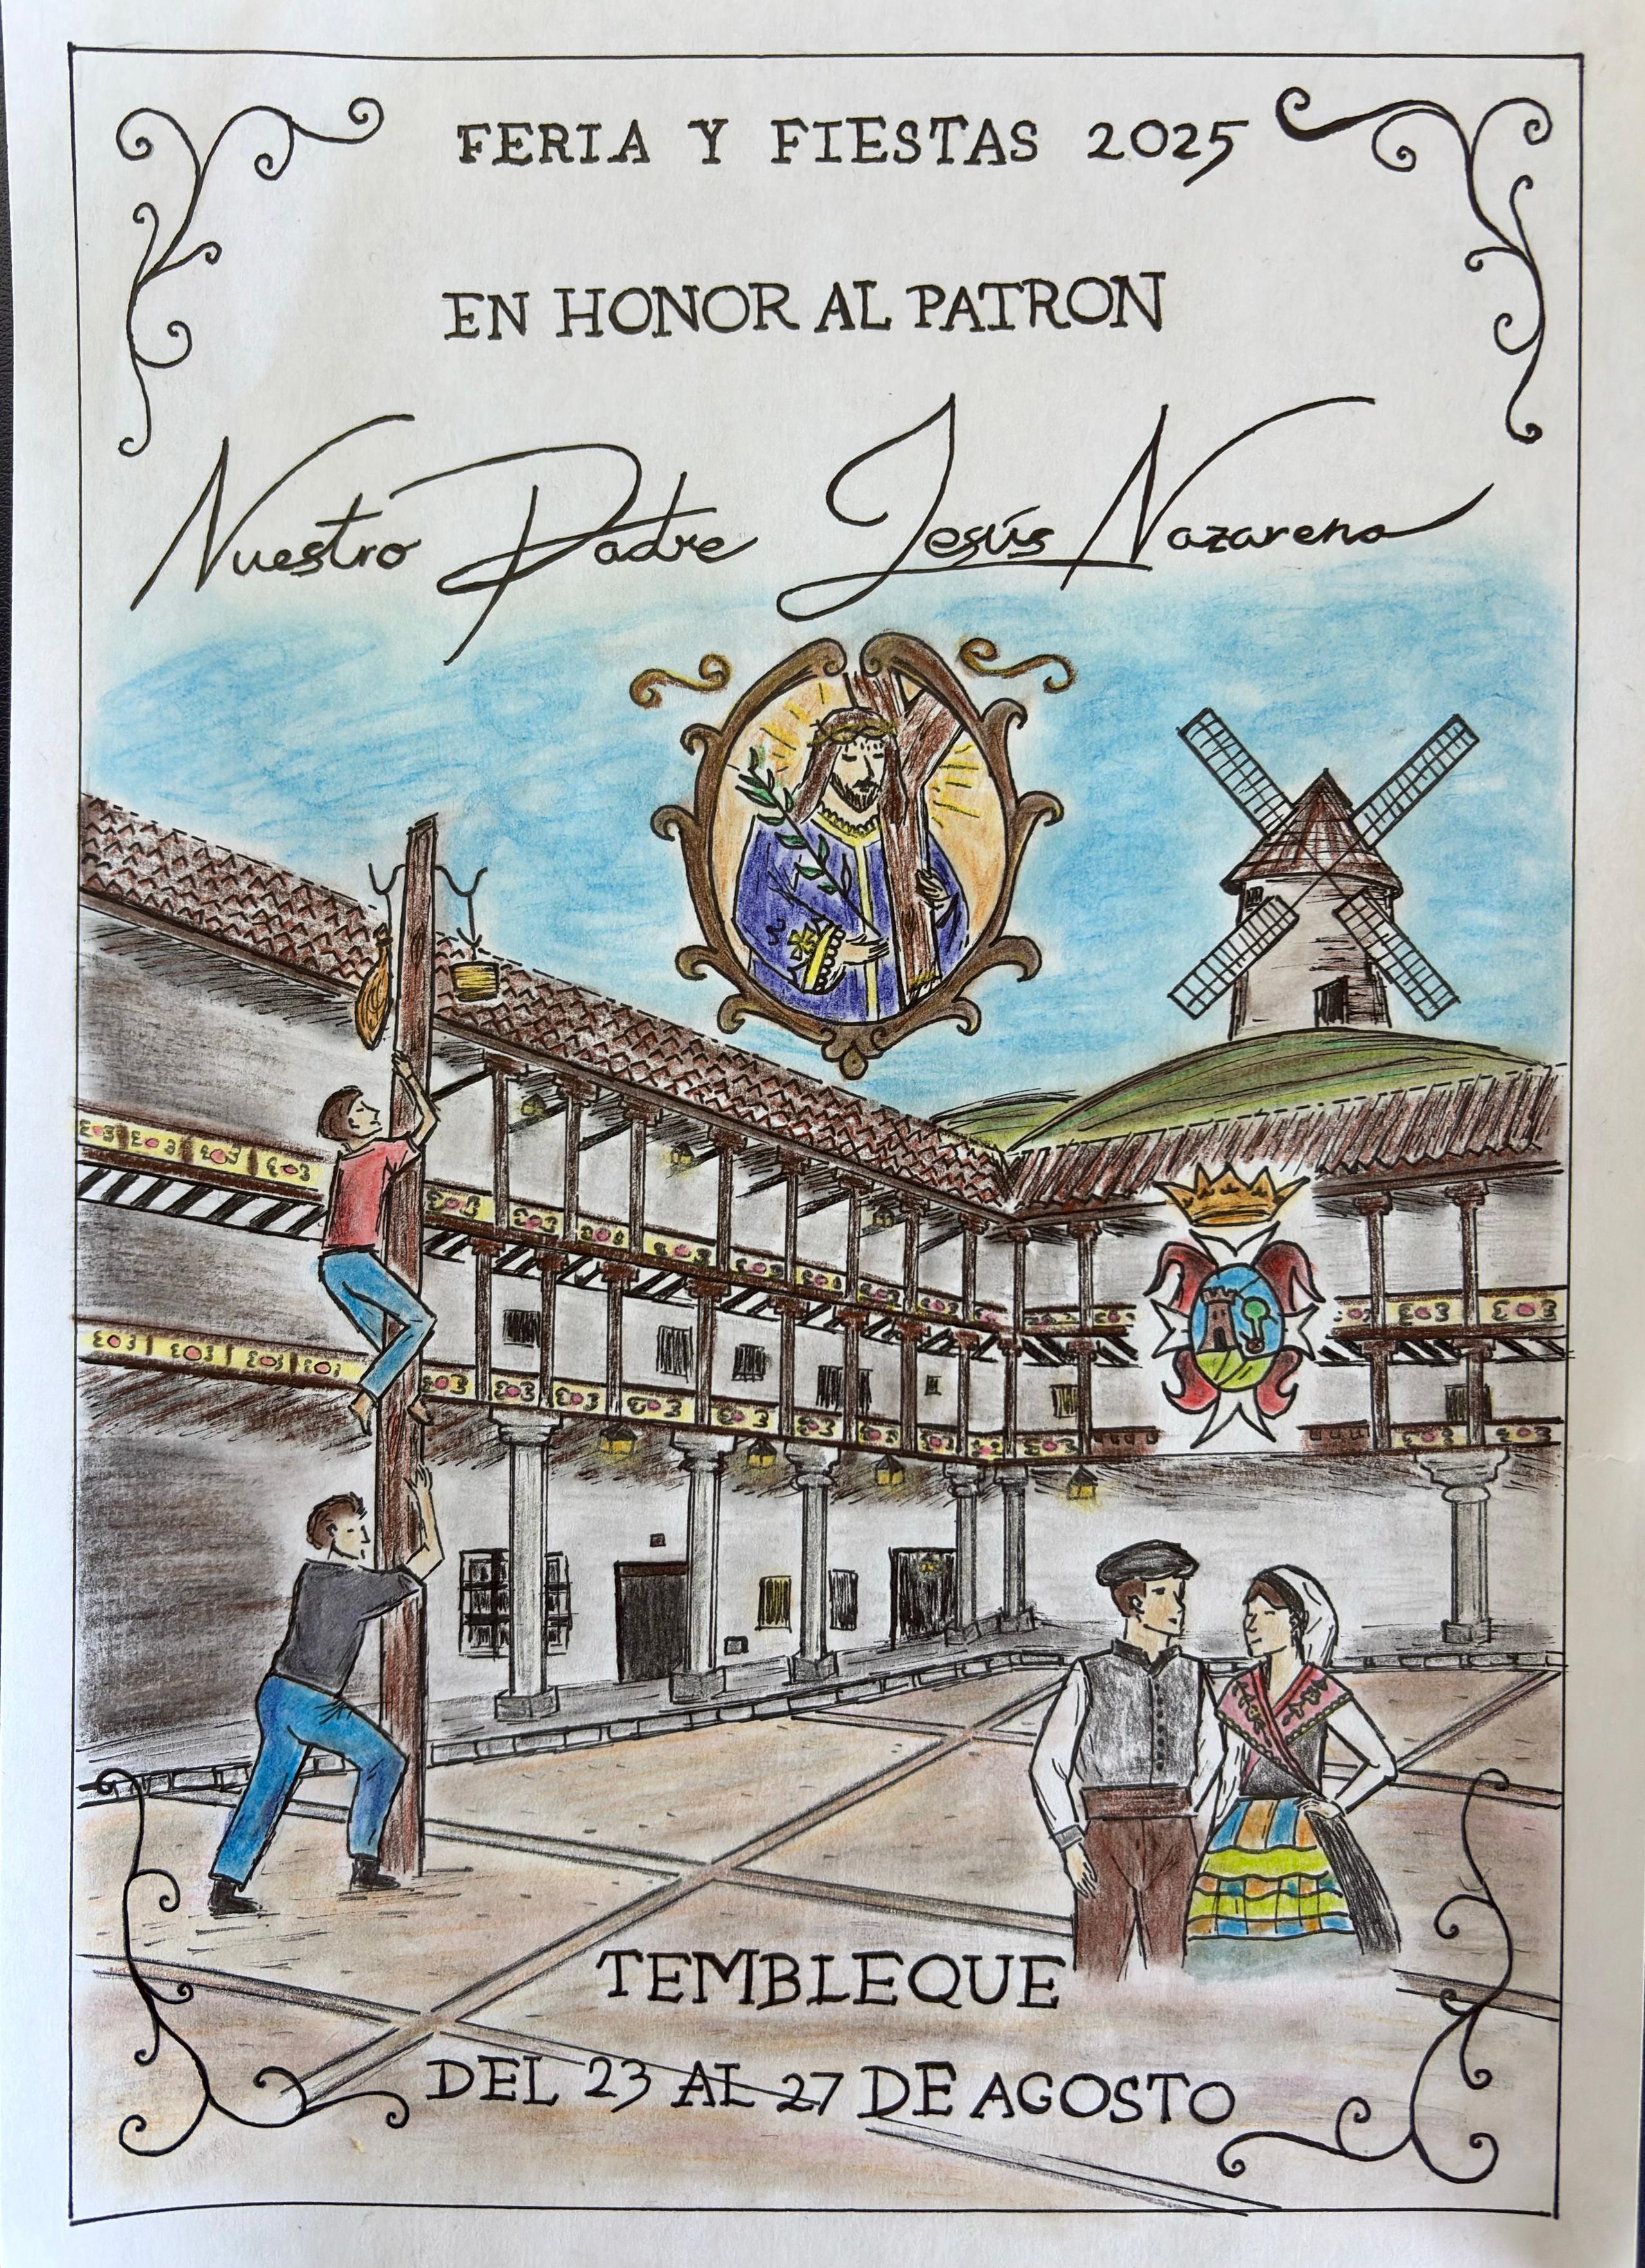 FERIA Y FIESTAS 2025
EN HONOR AL PATRON
Nuestro Padre Jesús Nazareno
TEMBLEQUE
DEL 23 AL 27 DE AGOSTO